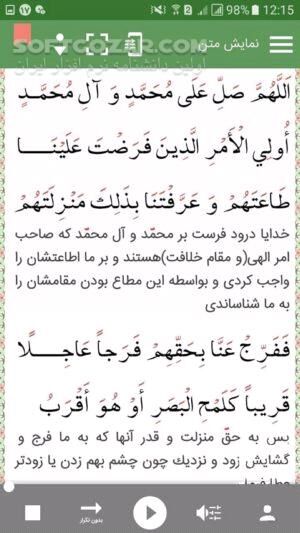 98% 12:15
نمایش متن
SOFTGOZAR.COM
اولین دانشنامه نرم افزار ایران
اَللّهُمَّ صَلِّ عَلی مُحَمَّدٍ وَ آلِ مُحَمَّدٍ
أُولِي الْأَمْرِ الَّذينَ فَرَضْتَ عَلَيْنَـــا
طَاعَتَهُمْ وَ عَرَّفْتَنَا بِذَلِكَ مَنْزِلَتَهُمْ
خدایا درود فرست بر محمّد و آل محمّد که صاحب
امر الهی(و مقام خلافت)هستند و بر ما اطاعتشان را
واجب کردی و بواسطه این مطاع بودن مقامشان را
به ما شناساندی
فَفَرِّجْ عَنَّا بِحَقِّهِمْ فَرَجاً عَاجِـــلًا
قَرِيباً كَلَمْحِ الْبَصَرِ أَوْ هُوَ أَقْرَبُ
بس به حقّ منزلت و قدر آنها که به ما فرج و
گشایش زود و نزدیك چون چشم بهم زدن یا زودتر
بدون تکرار